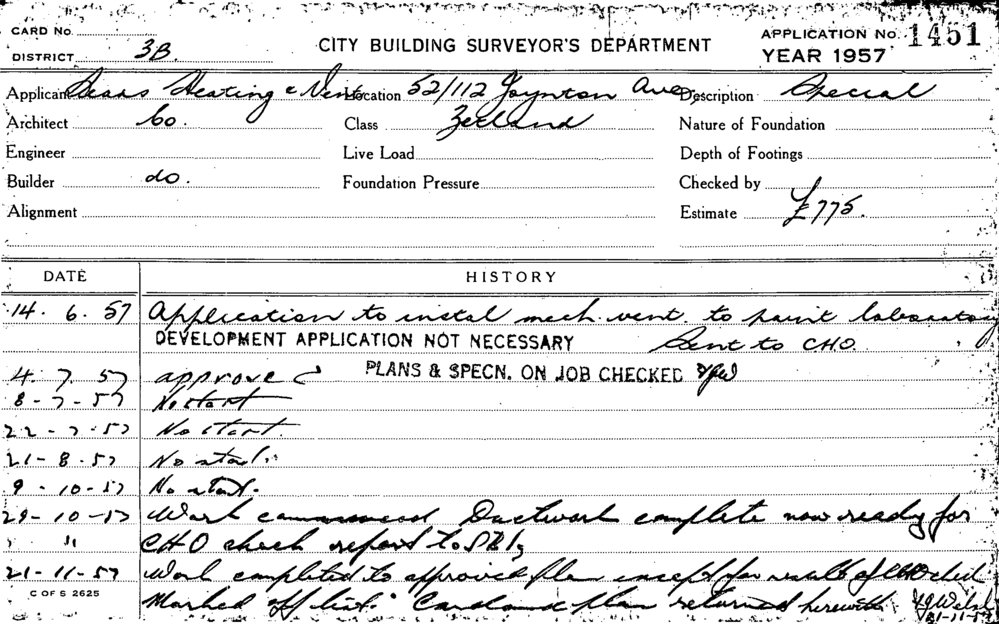 CARD No.
DISTRICT 3B.
CITY BUILDING SURVEYOR'S DEPARTMENT
APPLICATION No. 1451
YEAR 1957
Applicant Heating & Vent Location 52/112 Joynton Ave Description Special
Architect Co. Class Zetland Nature of Foundation
Engineer Live Load Depth of Footings
Builder do. Foundation Pressure Checked by
Alignment Estimate £775.
DATE HISTORY
14. 6. 57 Application to instal mech. vent. to paint laboratory
DEVELOPMENT APPLICATION NOT NECESSARY Sent to CHO.
4. 7. 57 approved PLANS & SPECN. ON JOB CHECKED
8-7-57 No start
22-7-57 No start.
21-8-57 No start.
9-10-57 No start.
29-10-57 Work commenced Ductwork complete now ready for
" CHO check report to
21-11-57 Work completed to approved plan except for result of CHO check
C OF S 2625
Marked off list. Card and plan returned herewith
21-11-57